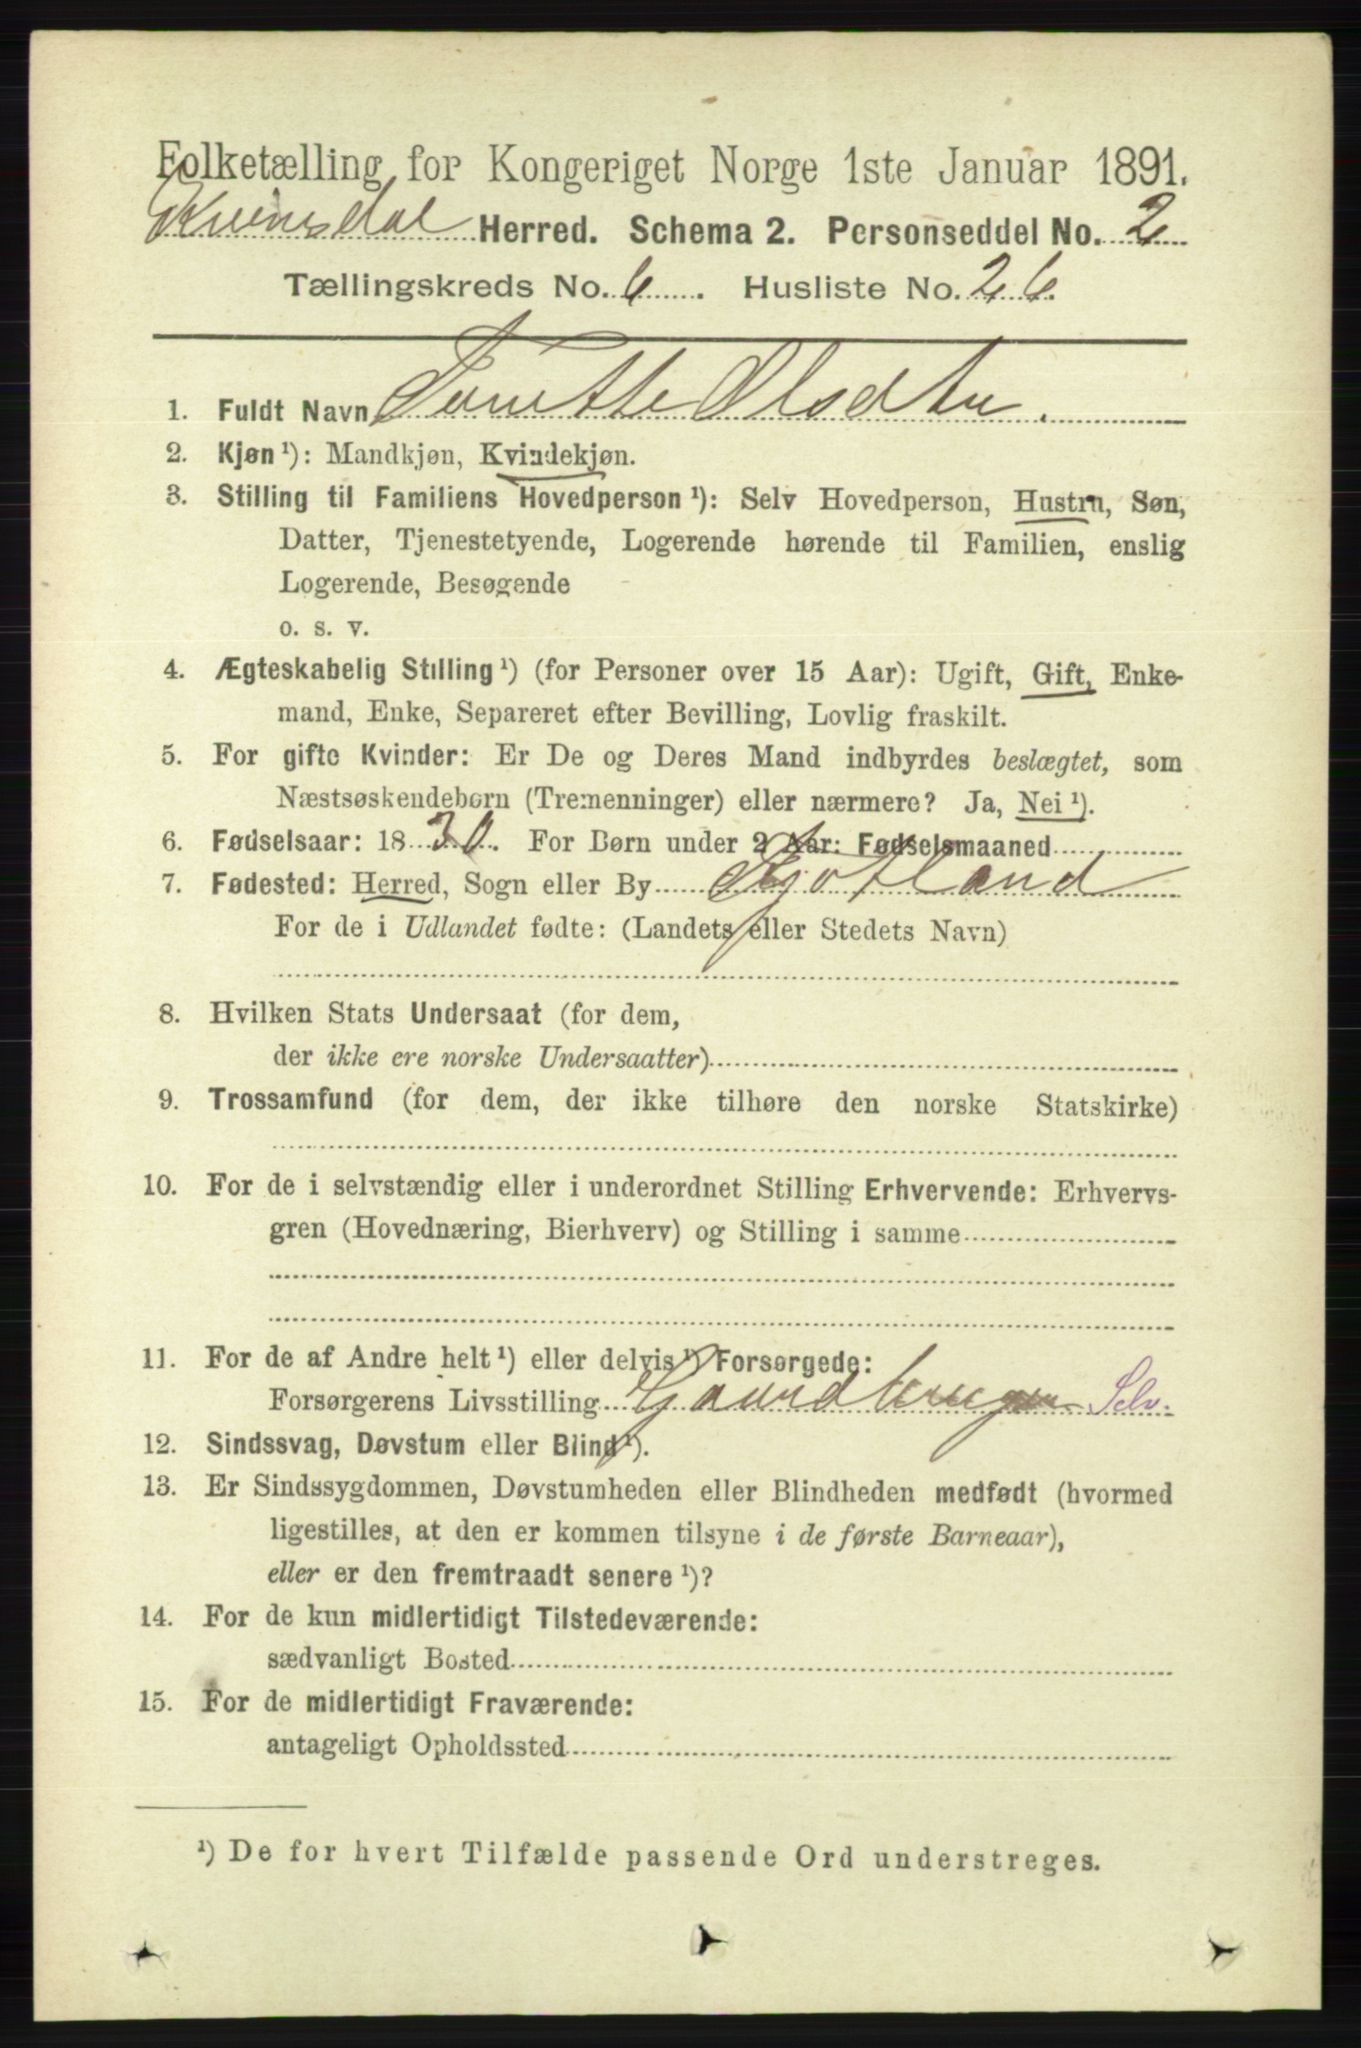 Folketælling for Kongeriget Norge 1ste Januar 1891.
Kvinesdal Herred. Schema 2. Personseddel No. 2
Tællingskreds No. 6. Husliste No. 26.
1. Fuldt Navn Tonette Olsdtr.
2. Kjøn ¹): Mandkjøn, Kvindekjøn.
3. Stilling til Familiens Hovedperson ¹): Selv Hovedperson, Hustru, Søn,
Datter, Tjenestetyende, Logerende hørende til Familien, enslig
Logerende, Besøgende
o. s. v.
4. Ægteskabelig Stilling ¹) (for Personer over 15 Aar): Ugift, Gift, Enke-
mand, Enke, Separeret efter Bevilling, Lovlig fraskilt.
5. For gifte Kvinder: Er De og Deres Mand indbyrdes beslægtet, som
Næstsøskendebørn (Tremenninger) eller nærmere? Ja, Nei ¹).
6. Fødselsaar: 1830. For Børn under 2 Aar: Fødselsmaaned
7. Fødested: Herred, Sogn eller By Fjotland
For de i Udlandet fødte: (Landets eller Stedets Navn)
8. Hvilken Stats Undersaat (for dem,
der ikke ere norske Undersaatter)
9. Trossamfund (for dem, der ikke tilhøre den norske Statskirke)
10. For de i selvstændig eller i underordnet Stilling Erhvervende: Erhvervs-
gren (Hovednæring, Bierhverv) og Stilling i samme
11. For de af Andre helt ¹) eller delvis ¹) Forsørgede:
Forsørgerens Livsstilling Gaardbruger Selv.
12. Sindssvag, Døvstum eller Blind ¹).
13. Er Sindssygdommen, Døvstumheden eller Blindheden medfødt (hvormed
ligestilles, at den er kommen tilsyne i de første Barneaar),
eller er den fremtraadt senere ¹)?
14. For de kun midlertidigt Tilstedeværende:
sædvanligt Bosted
15. For de midlertidigt Fraværende:
antageligt Opholdssted
¹) De for hvert Tilfælde passende Ord understreges.